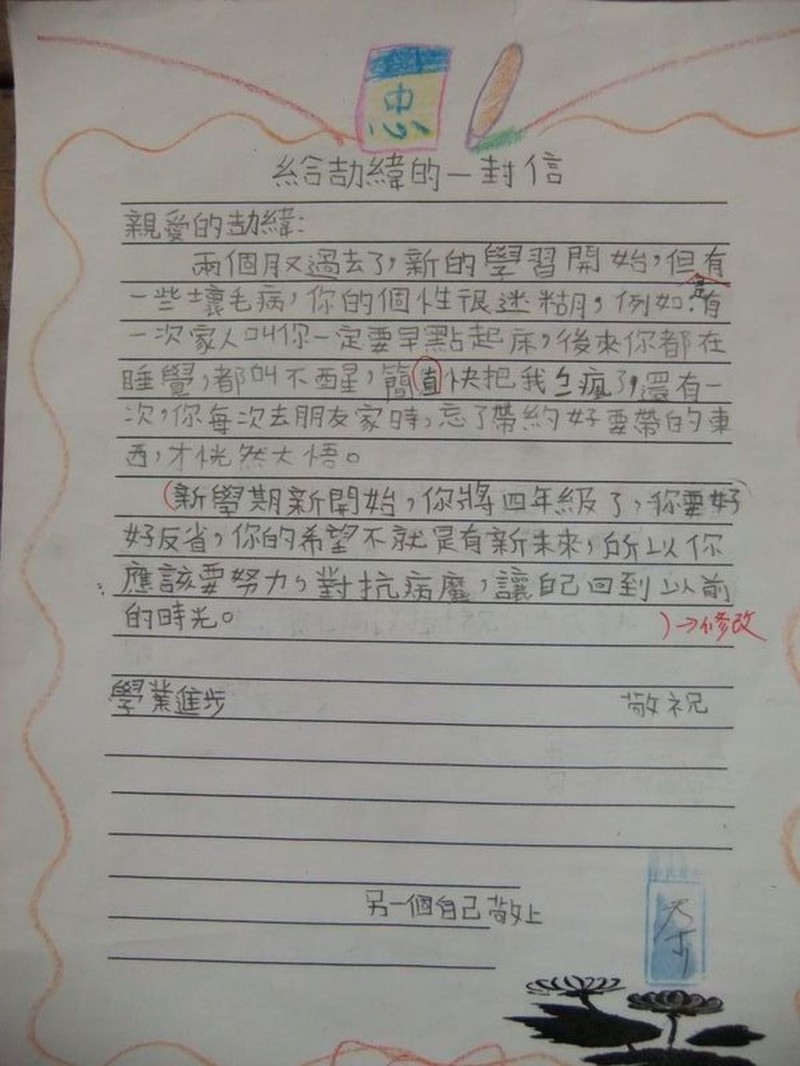 忠
給劼緯的一封信
親愛的劼緯:
兩個月又過去了,新的學習開始,但有
一些壞毛病,你的個性很迷糊,例如:有
一次家人叫你一定要早點起床,後來你都在
睡覺,都叫不醒,簡直快把我乞瘋了,還有一
次,你每次去朋友家時,忘了帶約好要帶的東
西,才恍然大悟。
(新學期新開始,你將四年級了,你要好
好反省,你的希望不就是有新未來,所以你
應該要努力,對抗病魔,讓自己回到以前
的時光。
)→修改
學業進步 敬祝
另一個自己敬上